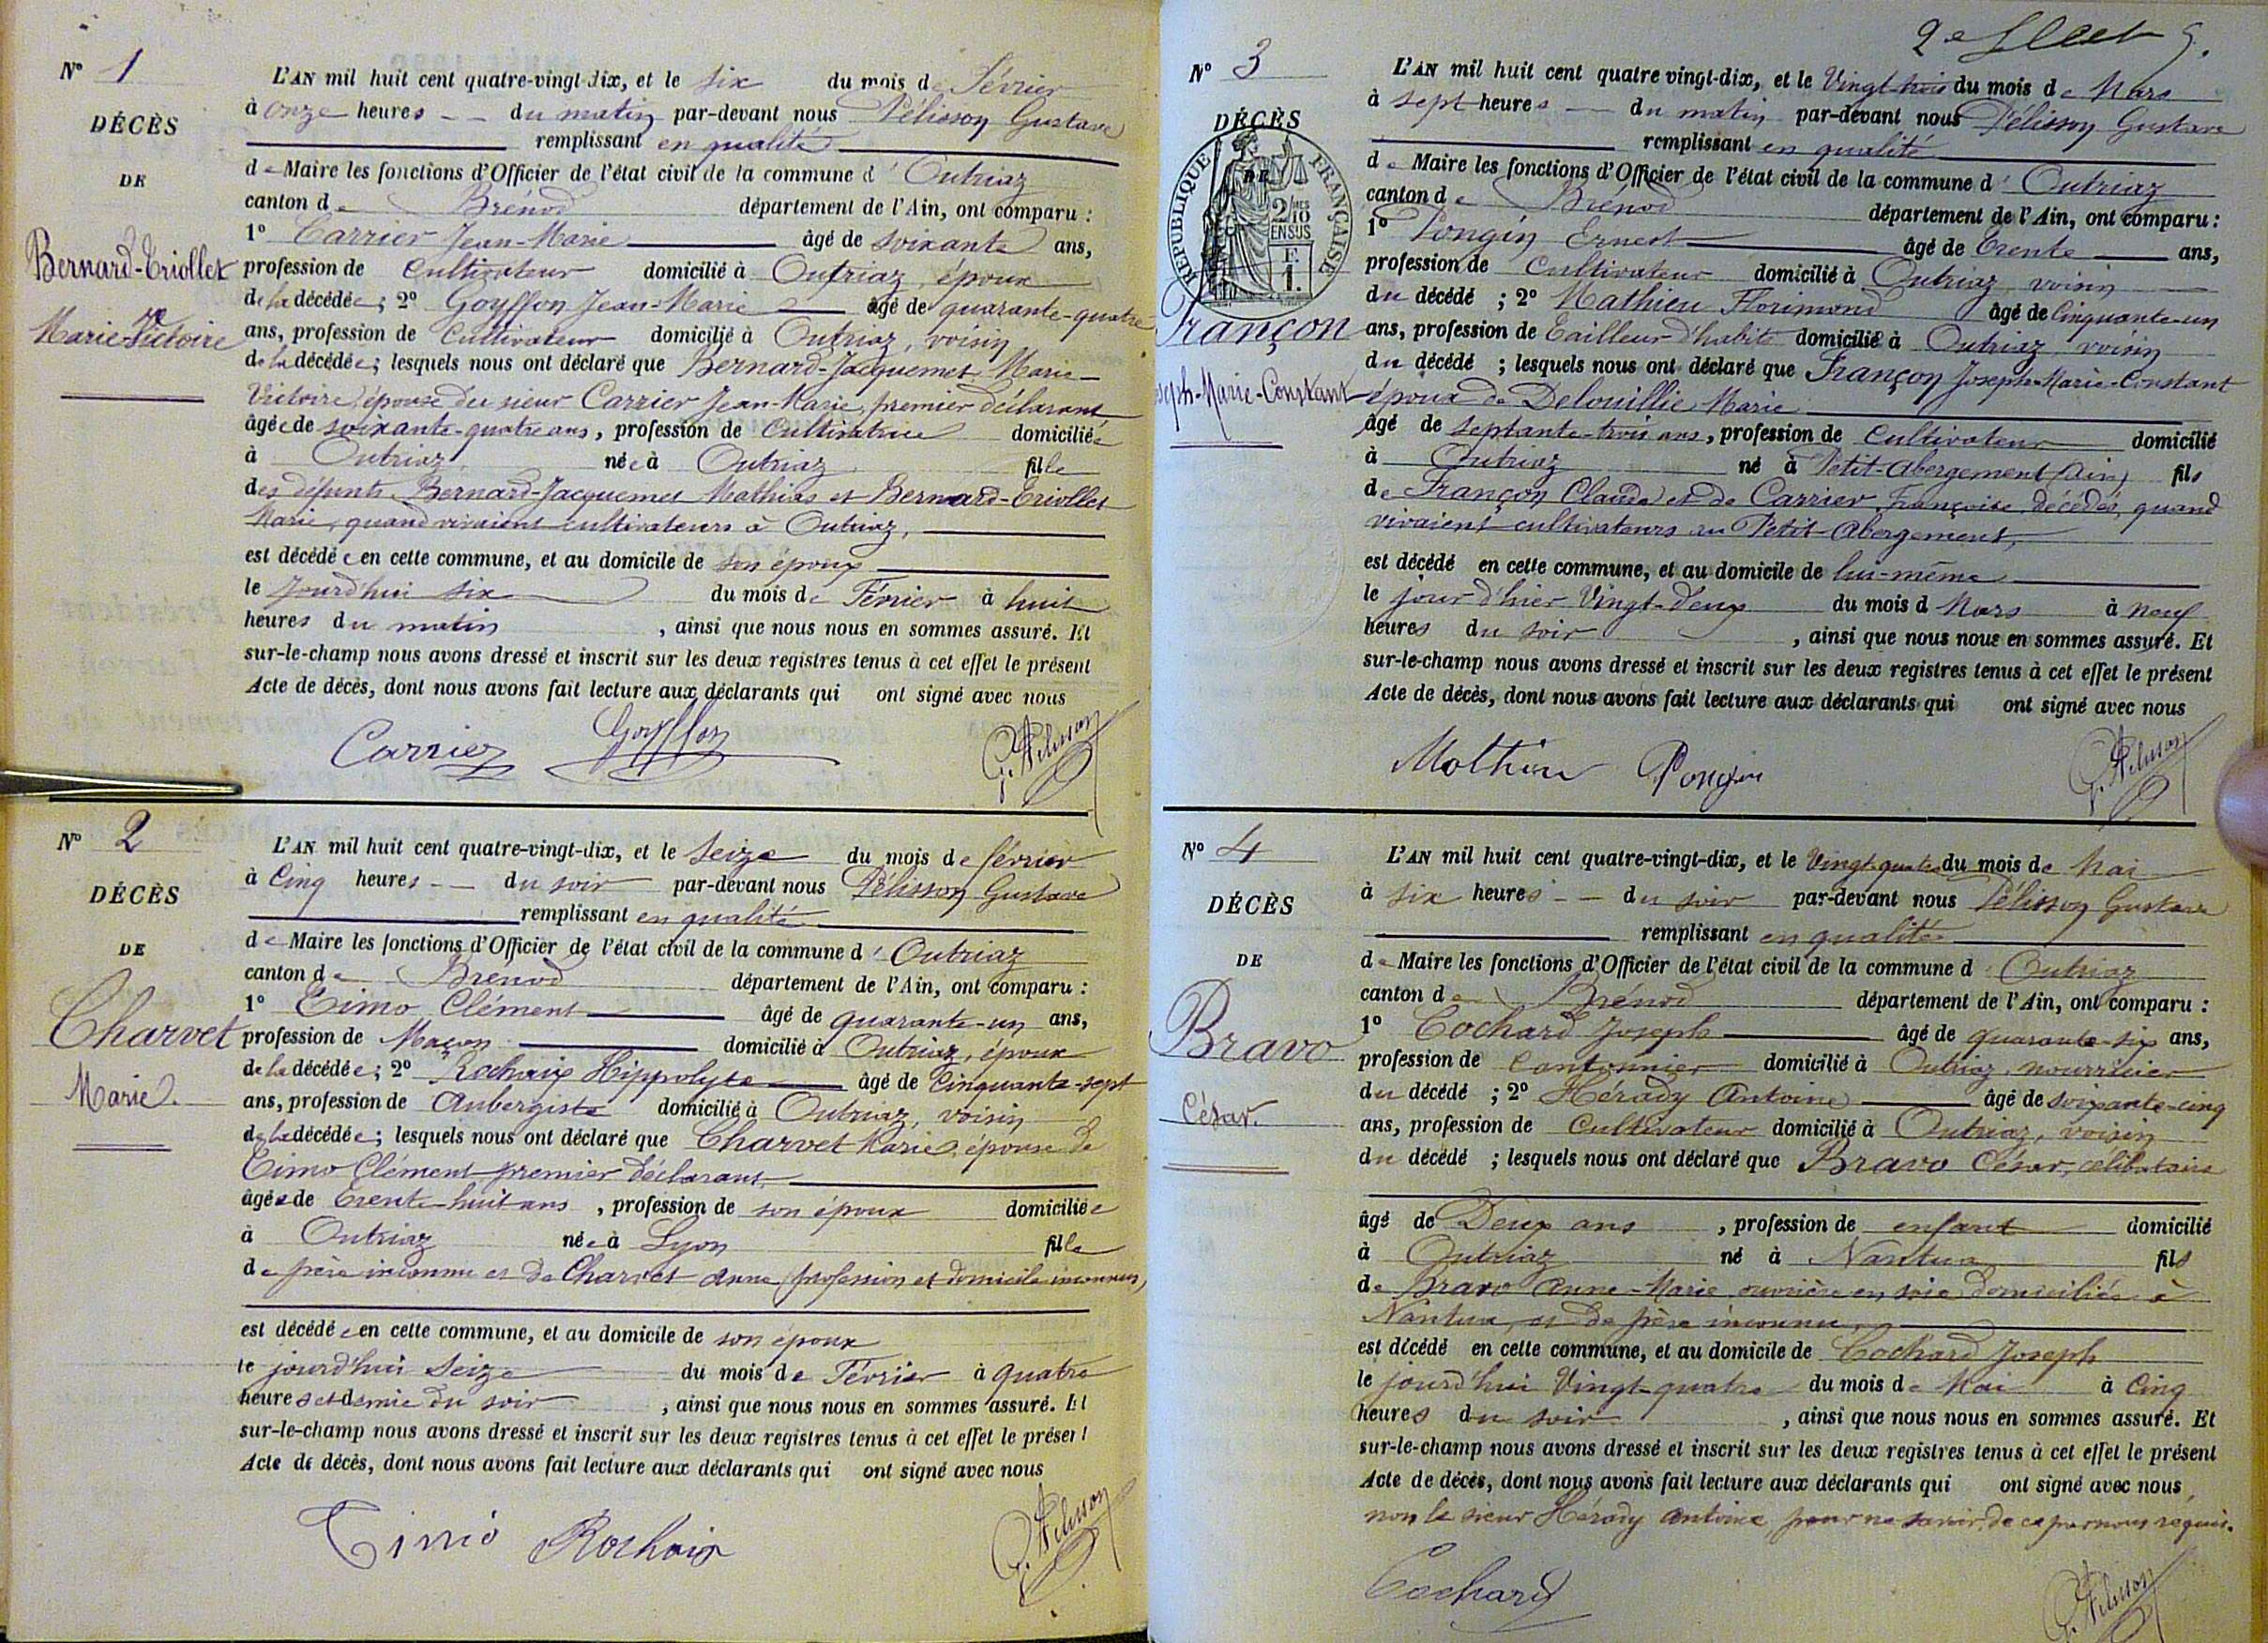 N° 1
DÉCÈS
DE
Bernard-Triollet
Marie Victoire
L'AN mil huit cent quatre-vingt-dix, et le six du mois de Février
à onze heures du matin par-devant nous Pélisson Gustave
remplissant en qualité
de Maire les fonctions d'Officier de l'état civil de la commune d'Outriaz
canton de Brénod département de l'Ain, ont comparu :
1° Carrier Jean-Marie âgé de soixante ans,
profession de Cultivateur domicilié à Outriaz, époux
de la décédée ; 2° Goyffon Jean-Marie âgé de quarante-quatre
ans, profession de Cultivateur domicilié à Outriaz, voisin
de la décédée ; lesquels nous ont déclaré que Bernard-Jacquemet Marie-
Victoire, épouse du sieur Carrier Jean-Marie, premier déclarant
âgée de soixante-quatre ans, profession de Cultivatrice domiciliée
à Outriaz née à Outriaz fille
des défunts Bernard-Jacquemet Mathias et Bernard-Triollet
Marie, quand vivaient cultivateurs à Outriaz,
est décédée en cette commune, et au domicile de son époux
le jourd'hui six du mois de Février à huit
heures du matin, ainsi que nous nous en sommes assuré. Et
sur-le-champ nous avons dressé et inscrit sur les deux registres tenus à cet effet le présent
Acte de décès, dont nous avons fait lecture aux déclarants qui ont signé avec nous
Carrier Goyffon G. Pélisson
N° 2
DÉCÈS
DE
Charvet
Marie.
L'AN mil huit cent quatre-vingt-dix, et le seize du mois de février
à Cinq heures du soir par-devant nous Pélisson Gustave
remplissant en qualité
de Maire les fonctions d'Officier de l'état civil de la commune d'Outriaz
canton de Brénod département de l'Ain, ont comparu :
1° Timo Clément âgé de quarante-un ans,
profession de Maçon domicilié à Outriaz, époux
de la décédée ; 2° Rochaix Hippolyte âgé de Cinquante-sept
ans, profession de Aubergiste domicilié à Outriaz, voisin
de la décédée ; lesquels nous ont déclaré que Charvet Marie, épouse de
Timo Clément premier déclarant,
âgée de trente-huit ans, profession de son époux domiciliée
à Outriaz née à Lyon fille
de père inconnu et de Charvet Anne (profession et domicile inconnus)
est décédée en cette commune, et au domicile de son époux
le jourd'hui seize du mois de Février à quatre
heures et demie du soir, ainsi que nous nous en sommes assuré. Et
sur-le-champ nous avons dressé et inscrit sur les deux registres tenus à cet effet le présent
Acte de décès, dont nous avons fait lecture aux déclarants qui ont signé avec nous
Timo Rochaix G. Pélisson
N° 3
DÉCÈS
DE
RÉPUBLIQUE FRANÇAISE
2/10 EN SUS
F. 1.
Françon
seph-Marie-Constant
L'AN mil huit cent quatre vingt-dix, et le Vingt trois du mois de Mars
à sept heures du matin par-devant nous Pélisson Gustave
remplissant en qualité
de Maire les fonctions d'Officier de l'état civil de la commune d'Outriaz
canton de Brénod département de l'Ain, ont comparu :
1° Pongin Ernest âgé de trente ans,
profession de Cultivateur domicilié à Outriaz voisin
du décédé ; 2° Mathieu Florimond âgé de Cinquante-un
ans, profession de Tailleur d'habits domicilié à Outriaz, voisin
du décédé ; lesquels nous ont déclaré que Françon Joseph-Marie-Constant
époux de Delouillie Marie
âgé de septante-trois ans, profession de Cultivateur domicilié
à Outriaz né à Petit-Abergement (Ain) fils
de Françon Claude et de Carrier Françoise, décédés, quand
vivaient cultivateurs au Petit-Abergement,
est décédé en cette commune, et au domicile de lui-même
le jour d'hier Vingt-deux du mois d Mars à neuf
heures du soir, ainsi que nous nous en sommes assuré. Et
sur-le-champ nous avons dressé et inscrit sur les deux registres tenus à cet effet le présent
Acte de décès, dont nous avons fait lecture aux déclarants qui ont signé avec nous
Mathieu Pongin G. Pélisson
N° 4
DÉCÈS
DE
Bravo
César.
L'AN mil huit cent quatre-vingt-dix, et le Vingt-quatre du mois de Mai
à six heures du soir par-devant nous Pélisson Gustave
remplissant en qualité
de Maire les fonctions d'Officier de l'état civil de la commune d Outriaz
canton de Brénod département de l'Ain, ont comparu :
1° Cochard Joseph âgé de quarante-six ans,
profession de Cantonnier domicilié à Outriaz, nourricier
du décédé ; 2° Hérady Antoine âgé de soixante-cinq
ans, profession de Cultivateur domicilié à Outriaz, voisin
du décédé ; lesquels nous ont déclaré que Bravo César, célibataire
âgé de Deux ans, profession de enfant domicilié
à Outriaz né à Nantua fils
de Bravo Anne-Marie ouvrière en soie domiciliée à
Nantua, et de père inconnu,
est décédé en cette commune, et au domicile de Cochard Joseph
le jourd'hui Vingt-quatre du mois de Mai à Cinq
heures du soir, ainsi que nous nous en sommes assuré. Et
sur-le-champ nous avons dressé et inscrit sur les deux registres tenus à cet effet le présent
Acte de décès, dont nous avons fait lecture aux déclarants qui ont signé avec nous,
non le sieur Hérady Antoine pour ne savoir, de ce par nous requis.
Cochard G. Pélisson